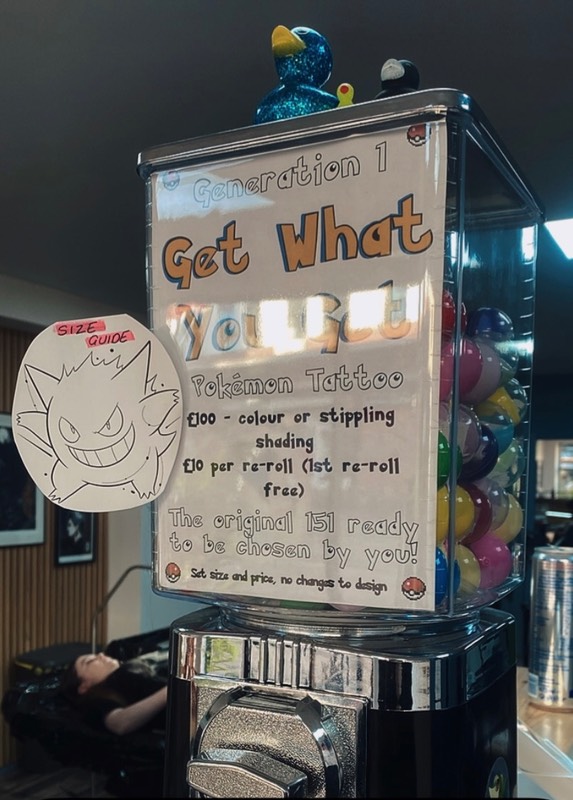 Generation 1
Get What
You Get
Pokémon Tattoo
£100 - colour or stippling
shading
£10 per re-roll (1st re-roll
free)
The original 151 ready
to be chosen by you!
Set size and price, no changes to design
SIZE
GUIDE